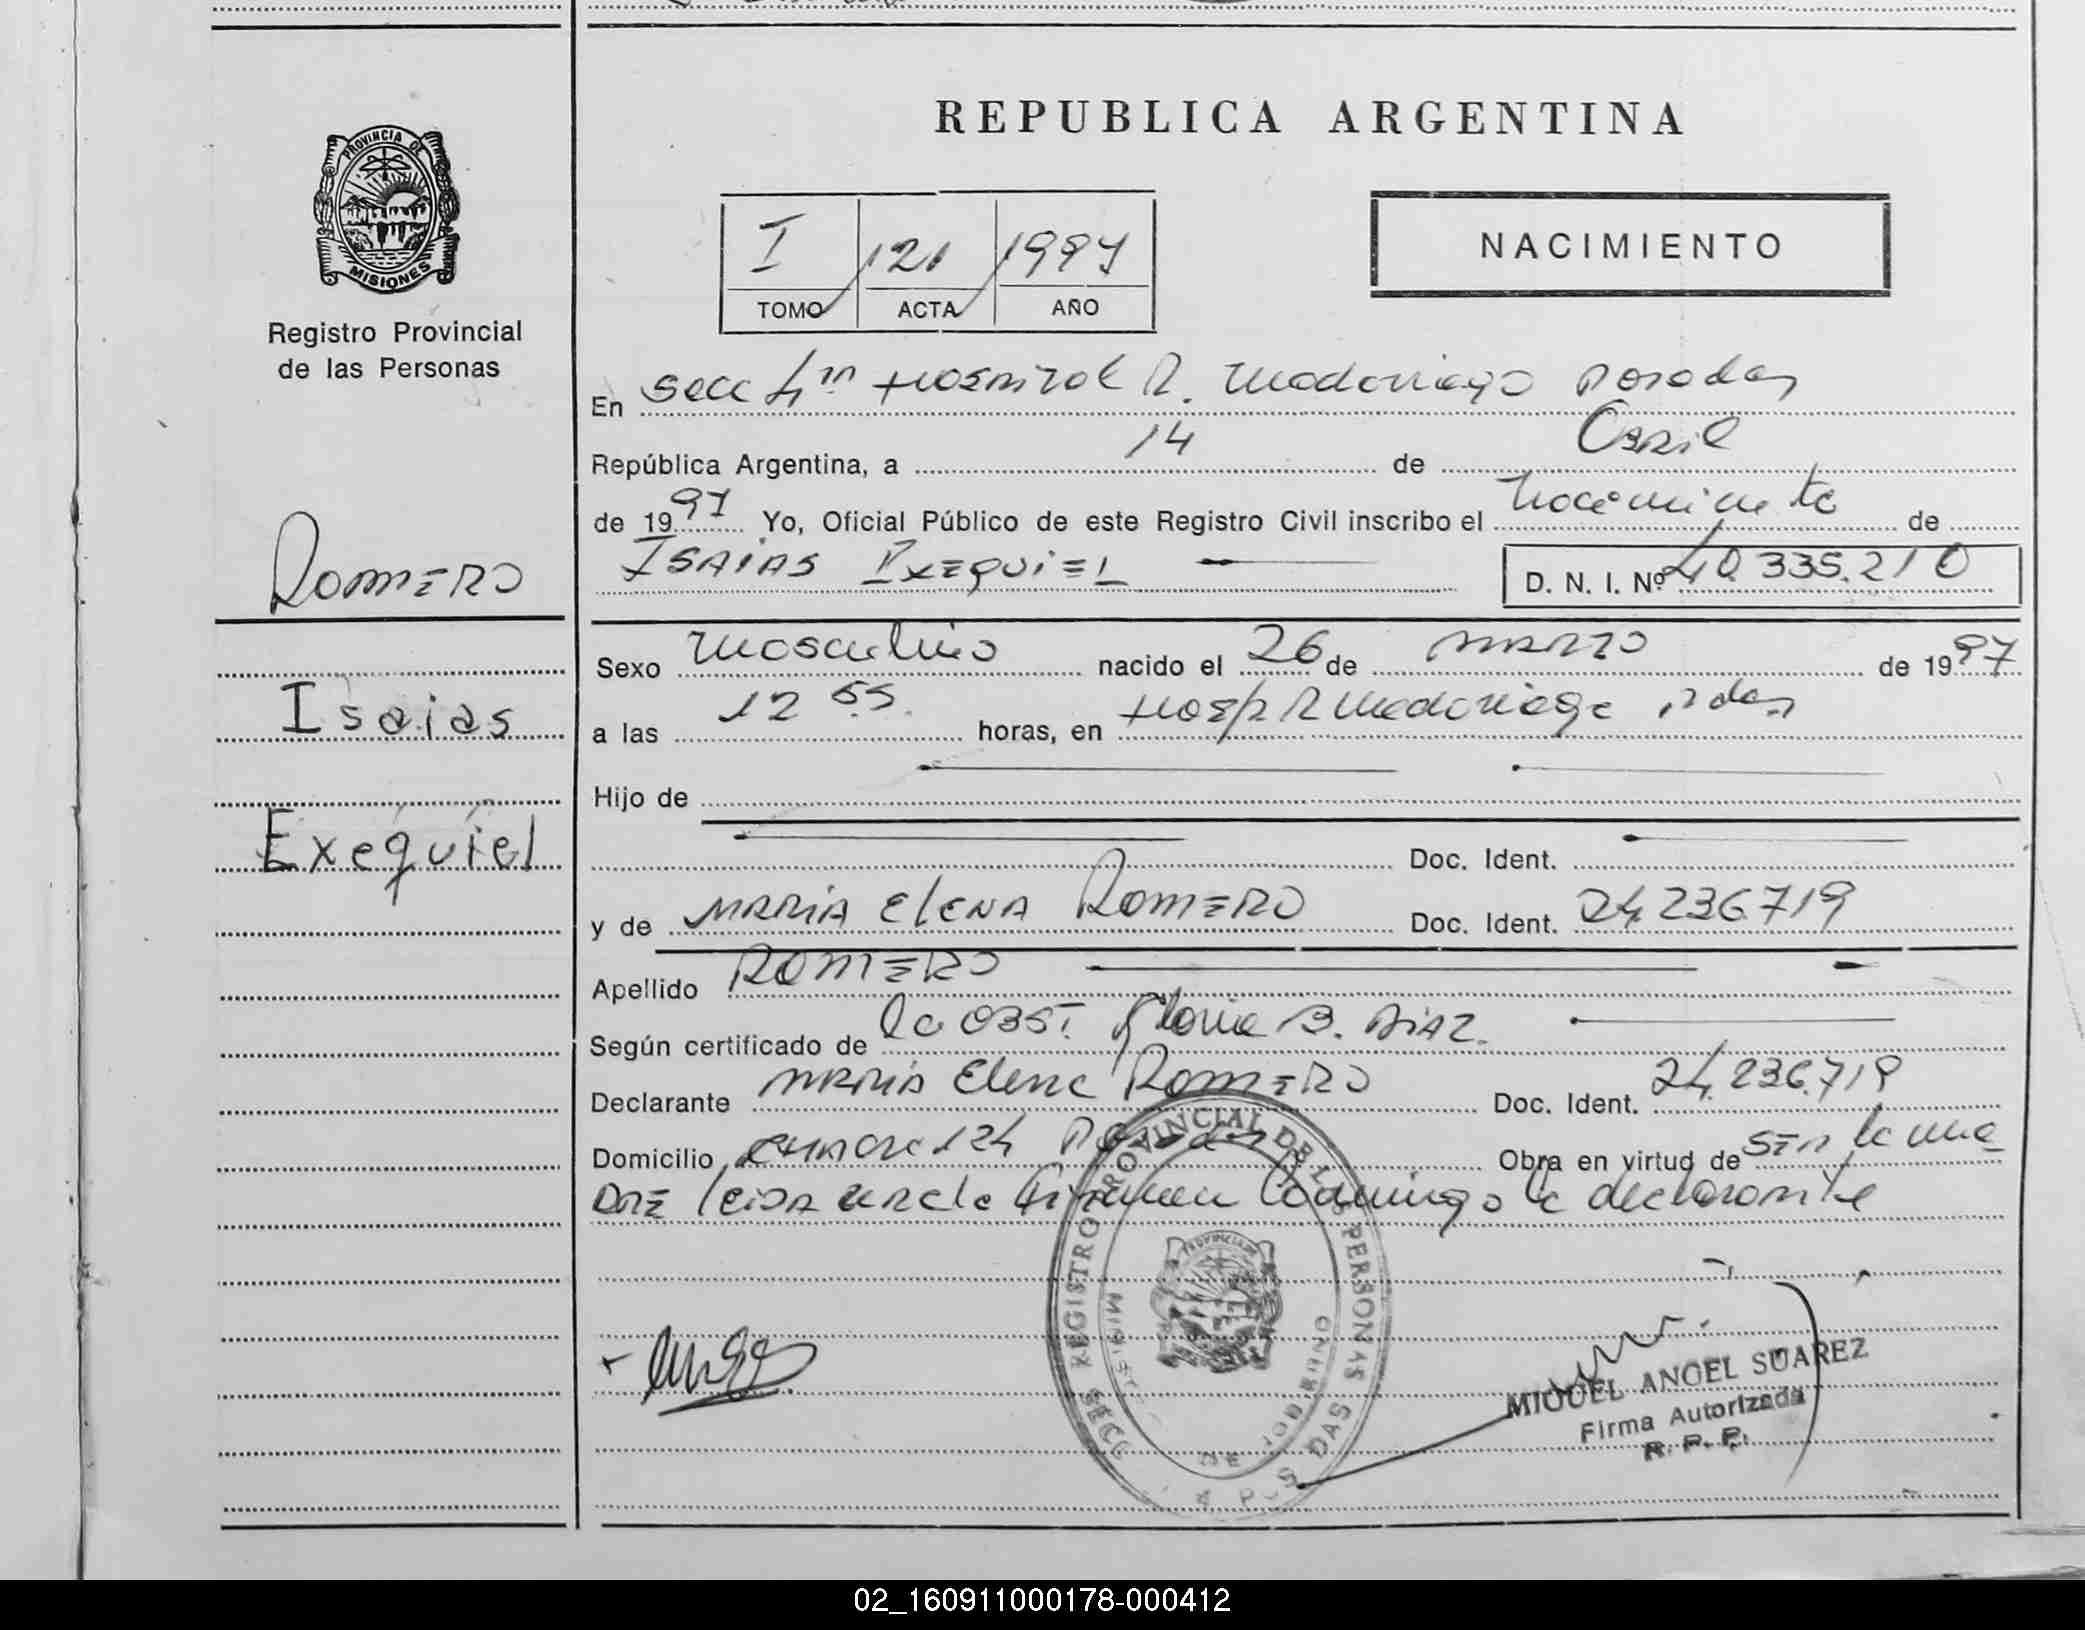 REPUBLICA ARGENTINA
PROVINCIA DE
MISIONES
Registro Provincial
de las Personas
I 121 1997
TOMO ACTA AÑO
NACIMIENTO
En Secc 4ta Hospital R. Madariaga Posadas
República Argentina, a 14 de Abril
de 1997 Yo, Oficial Público de este Registro Civil inscribo el nacimiento de
ISAIAS EXEQUIEL D. N. I. Nº 40.335.210
ROMERO
Isaias
Exequiel
Sexo masculino nacido el 26 de marzo de 1997
a las 12 55 horas, en Hosp R Madariaga Pdas
Hijo de
Doc. Ident.
y de MARIA ELENA ROMERO Doc. Ident. 24.236.719
Apellido ROMERO
Según certificado de la OBST. Gloria B. DIAZ.
Declarante MARIA Elena ROMERO Doc. Ident. 24.236.719
Domicilio 124 Posadas Obra en virtud de SER la ma
DRE leida acta firman conmigo la declarante
REGISTRO PROVINCIAL DE LAS PERSONAS
PROVINCIA DE
DE GOBIERNO
SECC
POSADAS
MIGUEL ANGEL SUAREZ
Firma Autorizada
R. P. P.
02_160911000178-000412